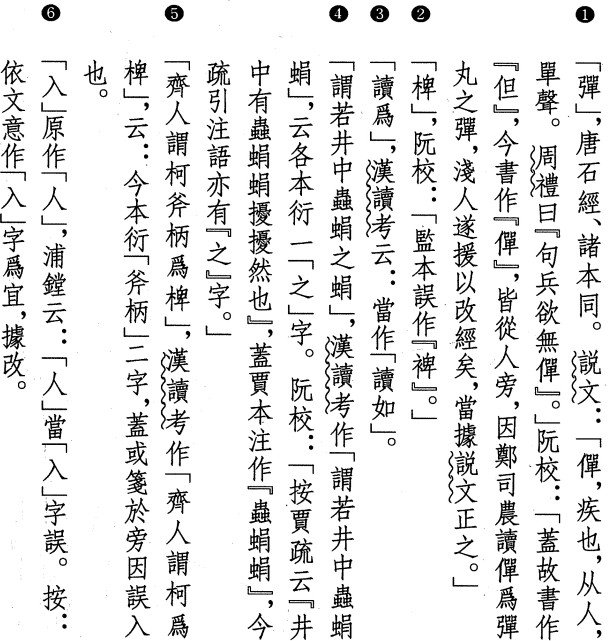 ❶「彈」，唐石經、諸本同。說文：「僤，疾也，从人，
單聲。周禮曰『句兵欲無僤』。」阮校：「蓋故書作
『但』，今書作『僤』，皆從人旁，因鄭司農讀僤爲彈
丸之彈，淺人遂援以改經矣，當據説文正之。」
❷「椑」，阮校：「監本誤作『裨』。」
❸「讀爲」，漢讀考云：當作「讀如」。
❹「謂若井中蟲蜎之蜎」，漢讀考作「謂若井中蟲蜎
蜎」，云各本衍一「之」字。阮校：「按賈疏云『井
中有蟲蜎蜎擾擾然也』，蓋賈本注作『蟲蜎蜎』，今
疏引注語亦有『之』字。」
❺「齊人謂柯斧柄爲椑」，漢讀考作「齊人謂柯爲
椑」，云：今本衍「斧柄」二字，蓋或箋於旁因誤入
也。
❻「入」原作「人」，浦鏜云：「人」當「入」字誤。按：
依文意作「入」字爲宜，據改。